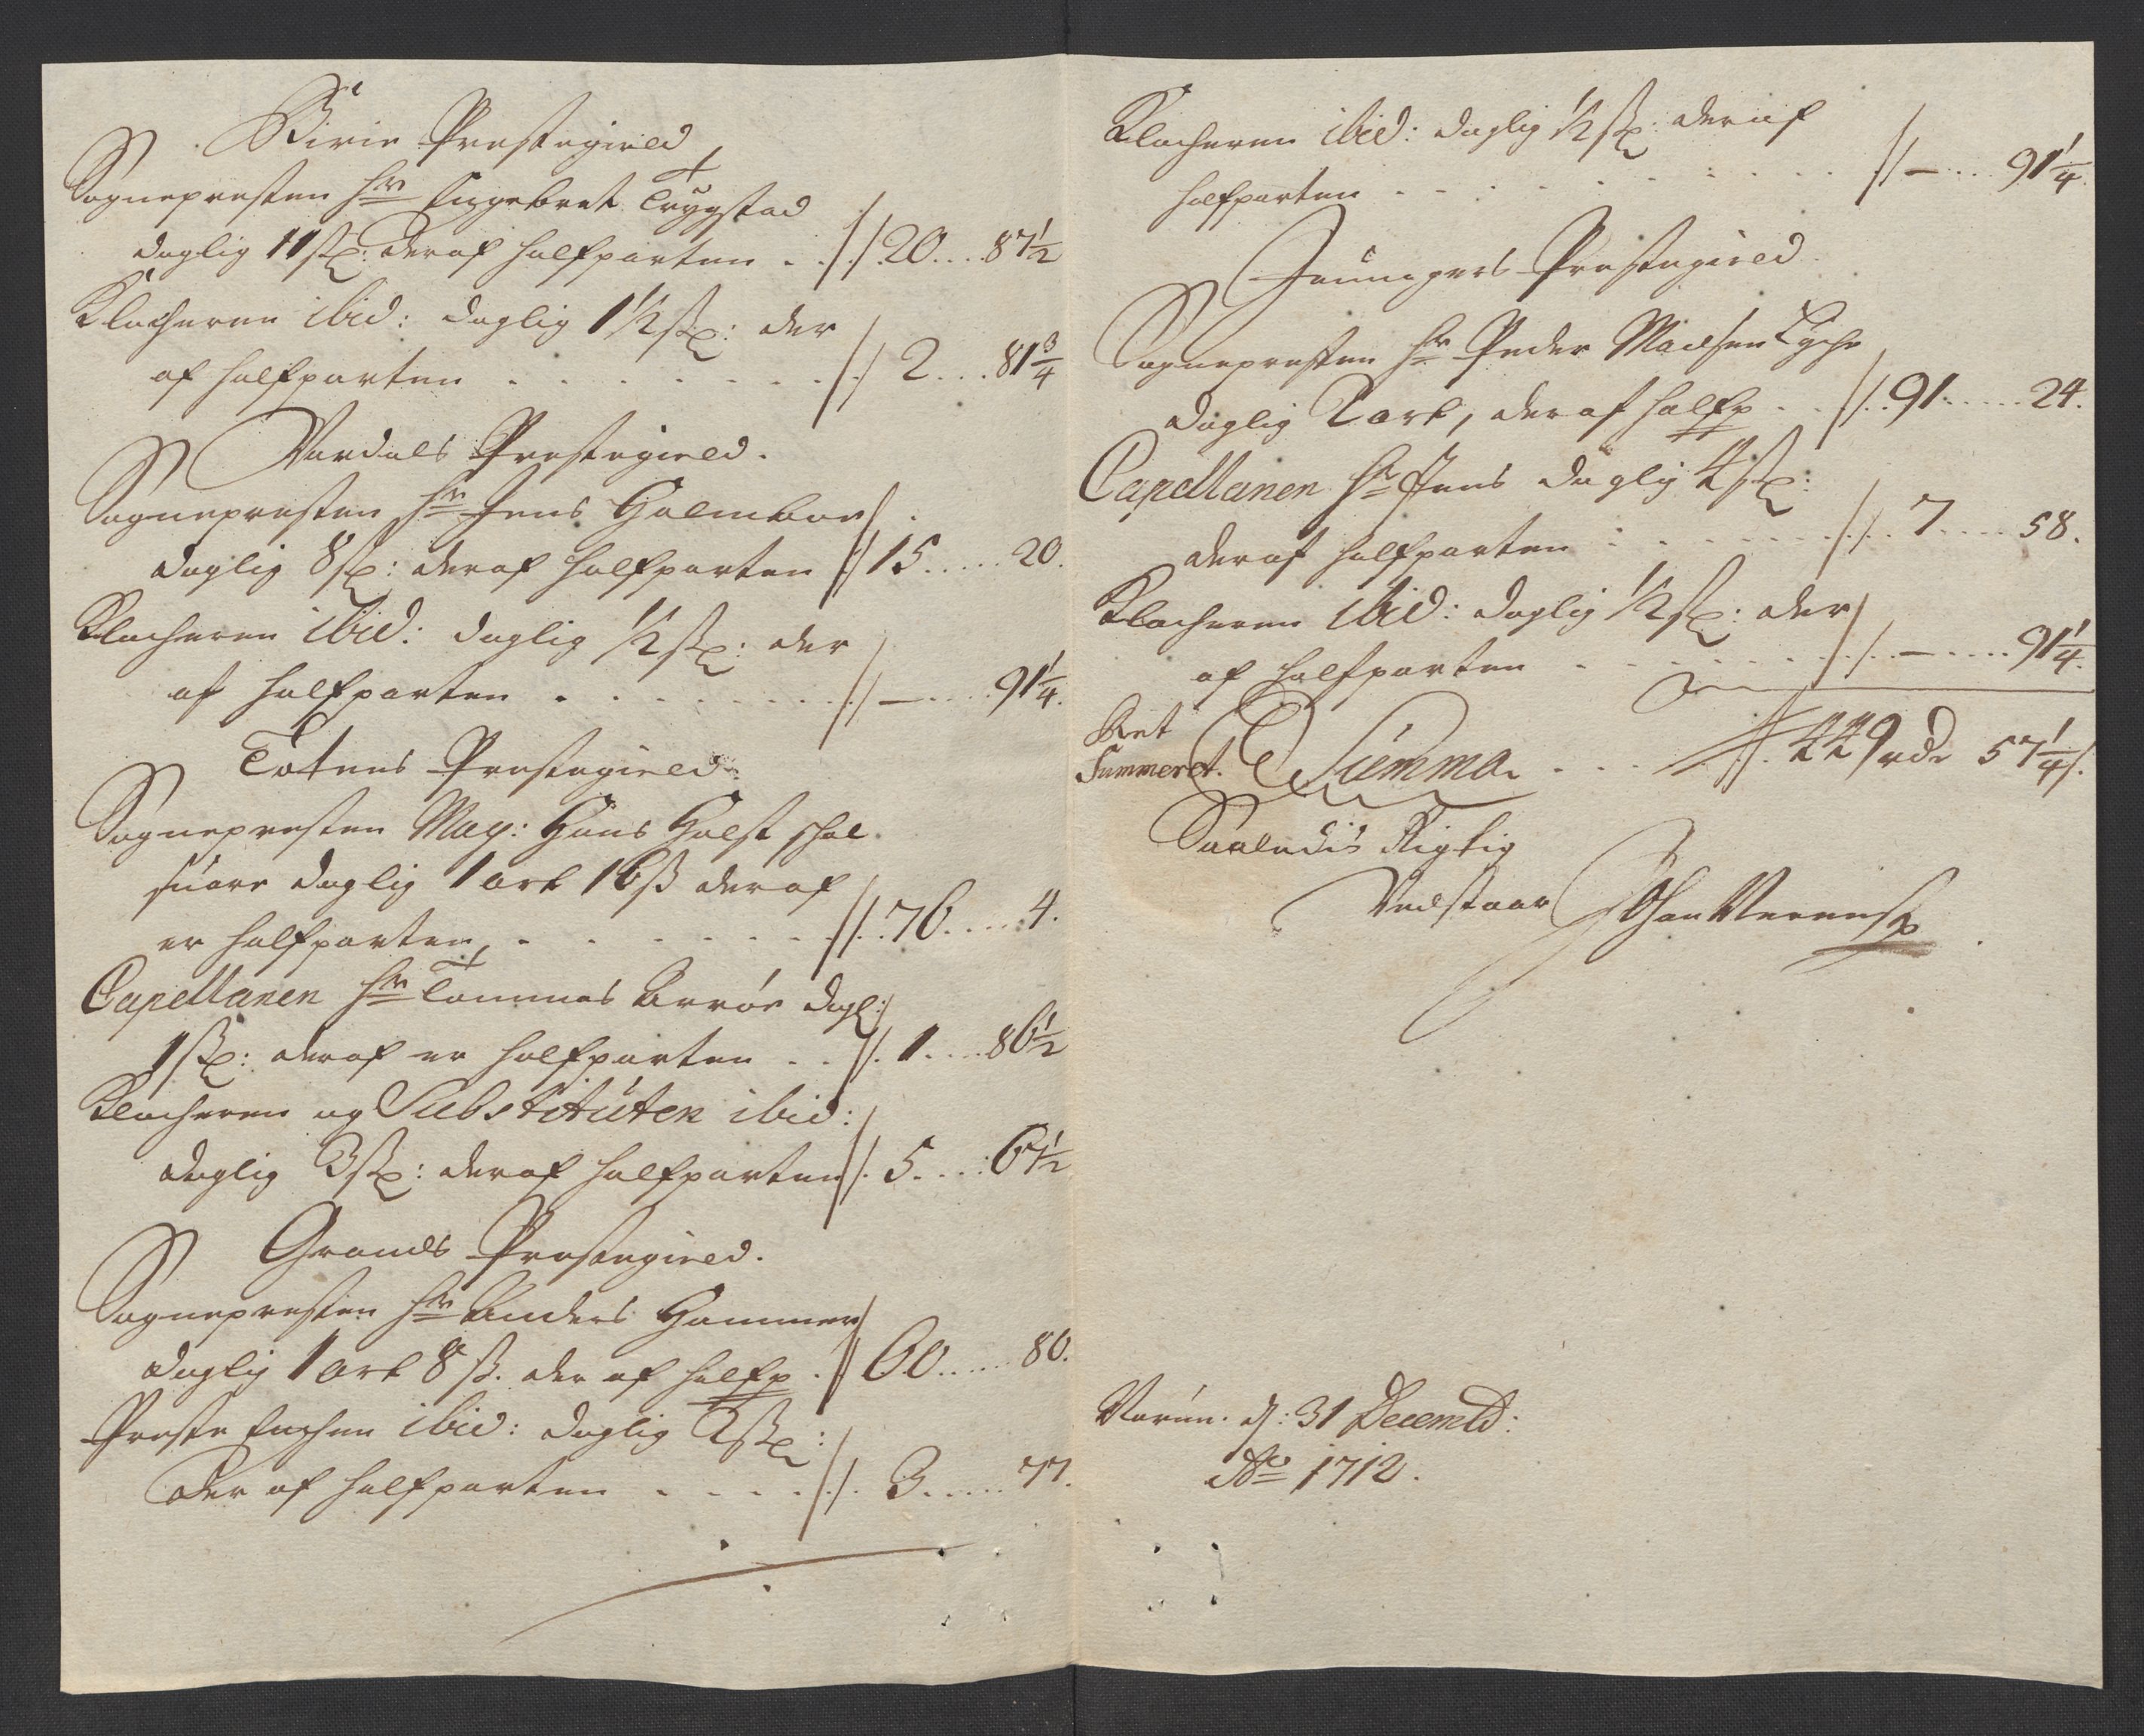 Birie Prestegield
Sognepresten Hr Engebret Trygstad
daglig 11 sk: deraf halfparten . . // 20 . . . . 87½
Klocheren ibid: daglig 1½ sk: der
af halfparten . . . . . . . // 2 . . . 81¾
Wardals Prestegield.
Sognepresten Hr Jens Holmboe
daglig 8 sk: deraf halfparten // 15 . . . . . 20.
Klocheren ibid: daglig ½ sk: der
af halfparten . . . . . . . // — . . . . 91¼.
Totens Prestegield.
Sognepresten Mag: Hans Holst skal
suare daglig 1 ort 16 ß deraf
er halfparten, . . . . . . . // 76 . . . . . 4.
Capellanen Hr Tommas Arrøe dagl:
1 sk: deraf er halfparten . . // 1 . . . . 86½
Klocheren og Substitúten ibid:
daglig 3 sk: deraf halfparten // 5 . . . . 67½
Grans Prestegield.
Sognepresten Hr Anders Hammer
daglig 1 ort 8 ß. der af halfp . // 60 . . . . . 80.
Preste Enchen ibid: daglig 2 sk:
der af halfparten . . . . // 3 . . . . . 77.
Klocheren ibid: daglig ½ sk: deraf
halfparten . . . . . . . . . . // — . . . . 91¼.
Jeunagers Prestegield.
Sognepresten Hr Peder Madsen Lyche
daglig 2 ort, deraf halfp . . // 91 . . . . . 24.
Capellanen Hr Jens daglig 4 sk:
deraf halfparten . . . . . . . // 7 . . . . . 58.
Klocheren ibid: daglig ½ sk: der
af halfparten . . . . . . . . // — . . . . . 91¼.
Ret
Summeret. Summa . . . // 449 rdr 57¼ ß.
Saaledis Rigtig
Vedstaar Johan
Warun. d: 31 Decembr:
Ao 1712.